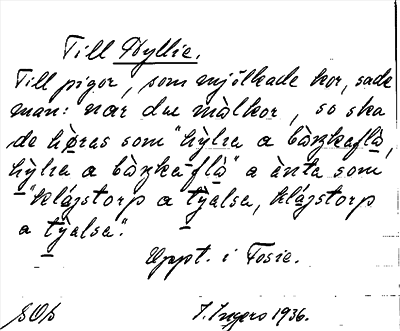 Till Hyllie.
Till pigor, som mjölkade kor, sade
man: nar du målkor, so ska
de höras som "hylia a bàzkaflà,
hylia a bàzkaflà" a ànta som
"klàjstorp a tyalsa, klàjstorp
a tyalsa".
Uppt. i Fosie.
I. Ingers 1936.